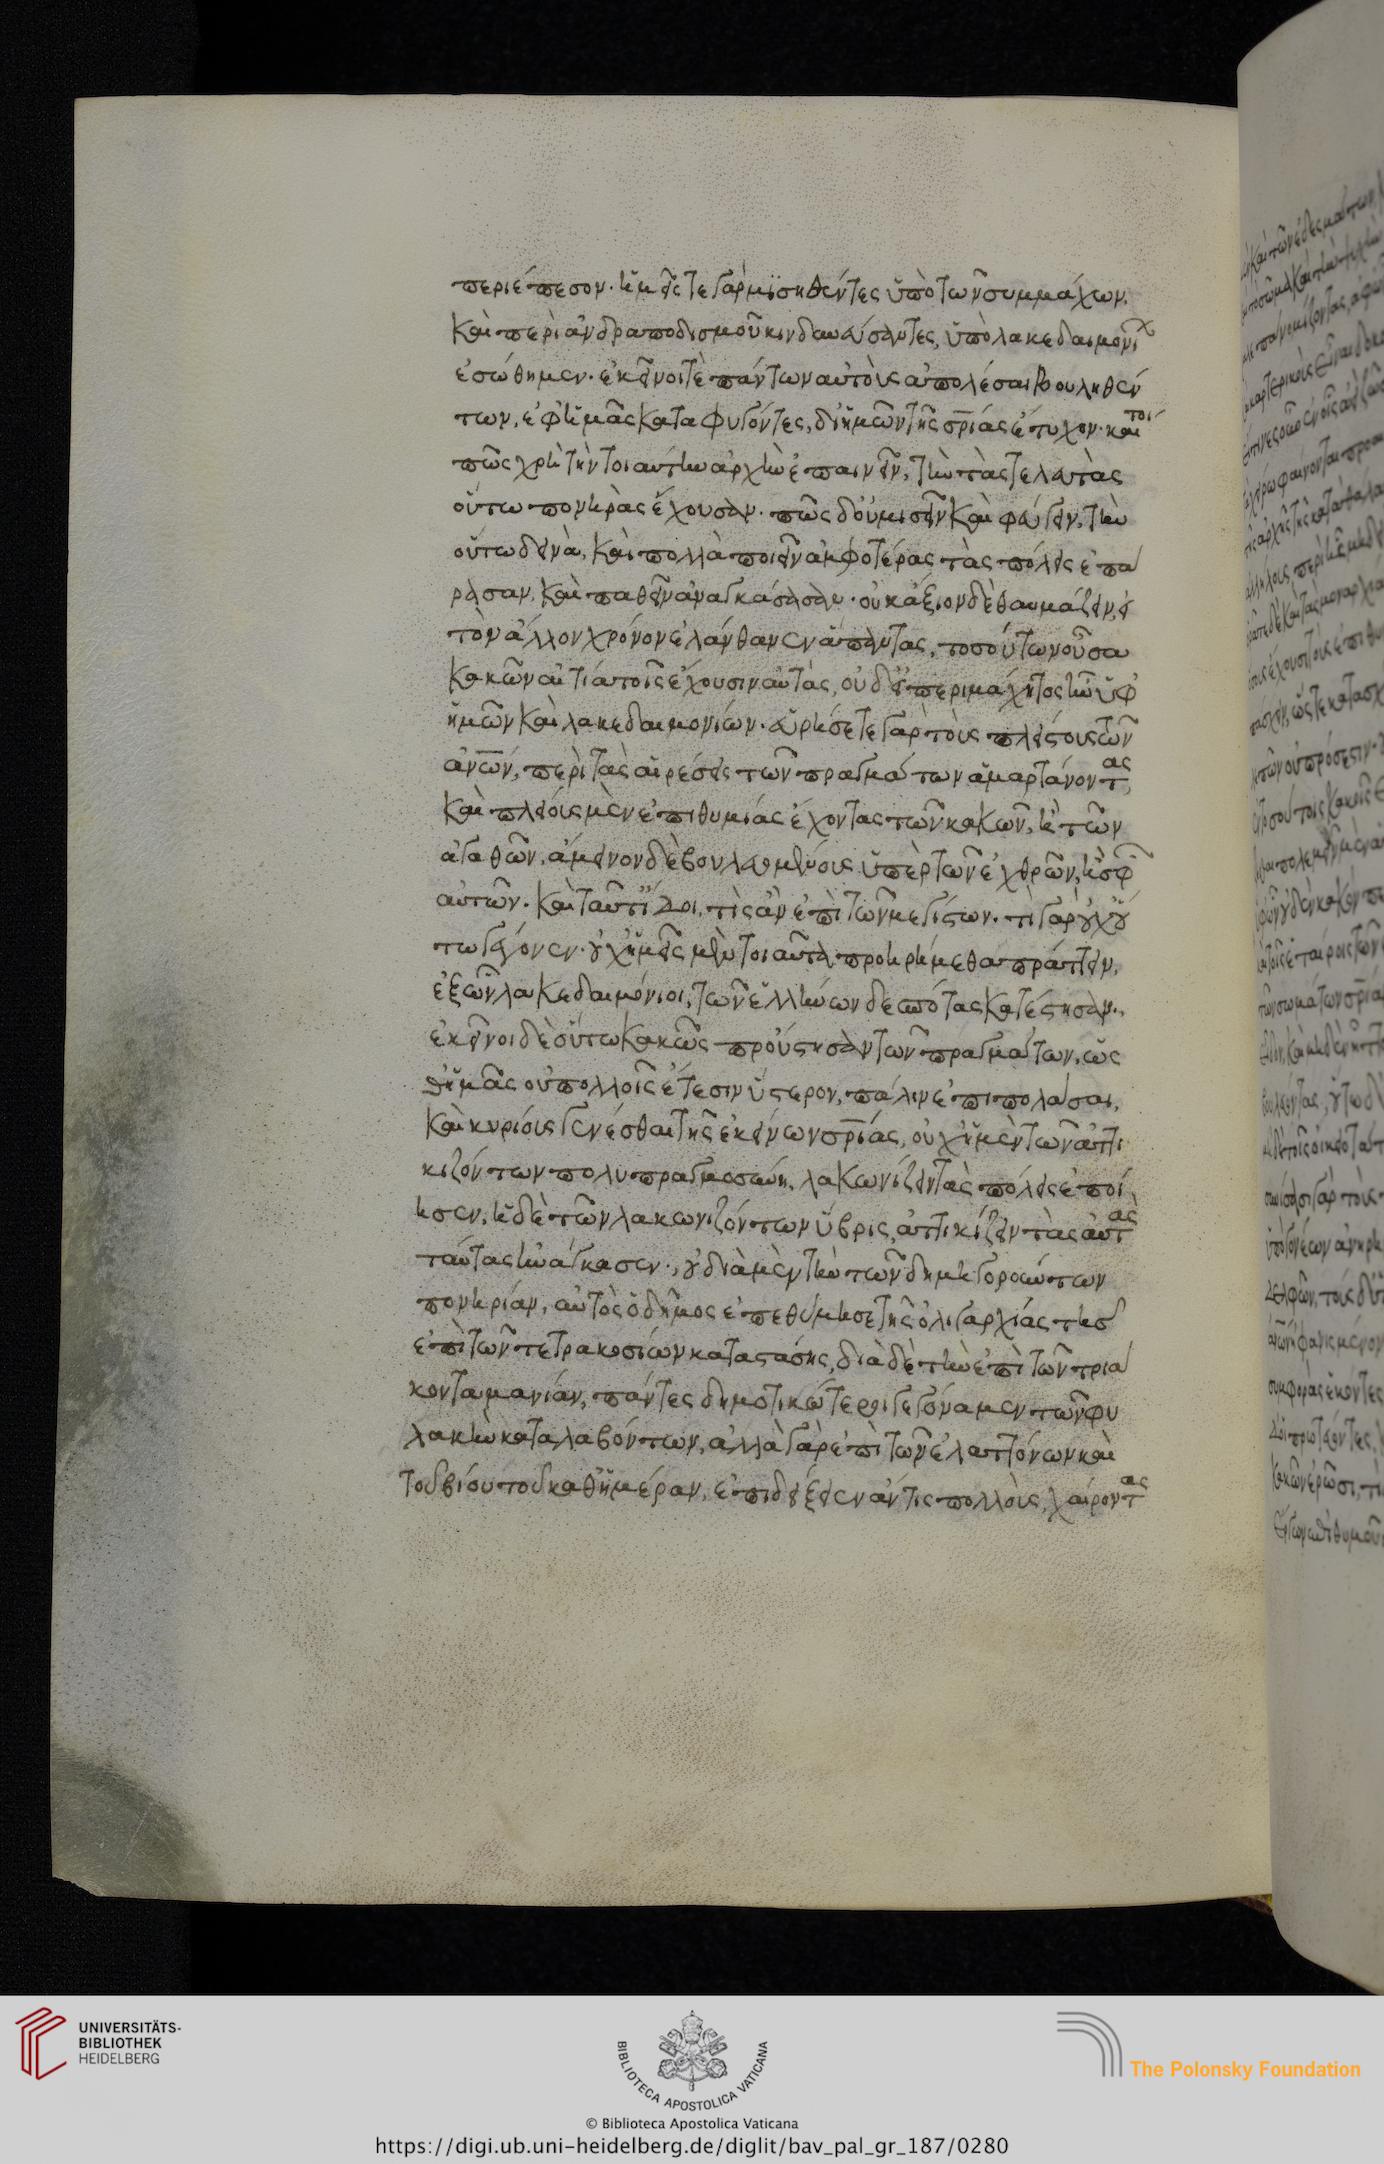 περιέπεσον· ἡμεῖς τε γὰρ μισηθέντες ὑπὸ τῶν συμμάχων,
καὶ περὶ ἀνδραποδισμοῦ κινδυνεύσαντες, ὑπὸ λακεδαιμονί
ἐσώθημεν· ἐκεῖνοί τε πάντων αὐτοὺς ἀπολέσαι βουληθέν
των, ἐφ' ἡμᾶς καταφυγόντες, δι' ἡμῶν τῆς σρίας ἔτυχον· καί τοι
πῶς χρὴ τὴν τοιαύτην ἀρχὴν ἐπαινεῖν, τὴν τὰς τελευτὰς
οὕτω πονηρὰς ἔχουσαν· πῶς δ' οὐ μισεῖν καὶ φεύγειν, τὴν
οὕτω δεινὰ, καὶ πολλὰ ποιεῖν ἀμφοτέρας τὰς πόλεις ἐπά
ρασαν, καὶ παθεῖν ἀναγκάσασαν· οὐκ ἄξιον δὲ θαυμάζειν, εἰ
τὸν ἄλλον χρόνον ἐλάνθανεν ἅπαντας, τοσούτων οὖσα
κακῶν αἰτία τοῖς ἔχουσιν αὐτὰς, οὐδ' εἰ περιμάχητος ἦν ὑφ'
ἡμῶν καὶ λακεδαιμονίων· εὑρήσετε γὰρ τοὺς πλείστους τῶν
ἀνῶν, περὶ τὰς αἱρέσεις τῶν πραγμάτων ἁμαρτάνοντας
καὶ πλείους μὲν ἐπιθυμίας ἔχοντας τῶν κακῶν, ἢ τῶν
ἀγαθῶν, ἄμεινον δὲ βουλευομένους ὑπὲρ τῶν ἐχθρῶν, ἢ σφῶν
αὐτῶν· καὶ ταῦτ' ἴδοι τὶς ἂν ἐπὶ τῶν μεγίστων· τί γὰρ οὐχ οὕ
τω γέγονεν· οὐχ ἡμεῖς μὲν τοιαῦτα προῃρήμεθα πράττειν,
ἐξ ὧν λακεδαιμόνιοι, τῶν ἑλλήνων δεσπότας κατέστησαν·
ἐκεῖνοι δὲ οὕτω κακῶς προὔστησαν τῶν πραγμάτων, ὥς
θ' ἡμᾶς οὐ πολλοῖς ἔτεσιν ὕστερον, πάλιν ἐπιπολάσαι,
καὶ κυρίους γενέσθαι τῆς ἐκείνων σρίας, οὐχ ἡ μὲν τῶν ἀττι
κιζόντων πολυπραγμοσύνη, λακωνίζειν τὰς πόλεις ἐποί
ησεν, ἡ δὲ τῶν λακωνιζόντων ὕβρις, ἀττικίζειν τὰς αὐτὰς
ταύτας ἠνάγκασεν·, οὐ διὰ μὲν τὴν τῶν δημηγορούντων
πονηρίαν, αὐτὸς ὁ δῆμος ἐπεθύμησε τῆς ὀλιγαρχίας τῆσ
ἐπὶ τῶν τετρακοσίων καταστάσης, διὰ δὲ τὴν ἐπὶ τῶν τριά
κοντα μανίαν, πάντες δημοτικώτεροι γεγόναμεν τῶν φυ
λακὴν καταλαβόντων, ἀλλὰ γὰρ ἐπὶ τῶν ἐλαττόνων καὶ
τοῦ βίου τοῦ καθ' ἡμέραν, ἐπιδείξειεν ἄν τις πολλοὺς, χαίροντας
UNIVERSITÄTS-
BIBLIOTHEK
HEIDELBERG
BIBLIOTECA APOSTOLICA VATICANA
The Polonsky Foundation
© Biblioteca Apostolica Vaticana
https://digi.ub.uni-heidelberg.de/diglit/bav_pal_gr_187/0280